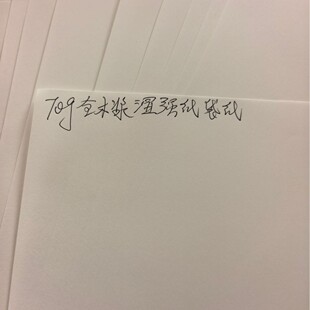 70g全木浆湿强纸袋纸